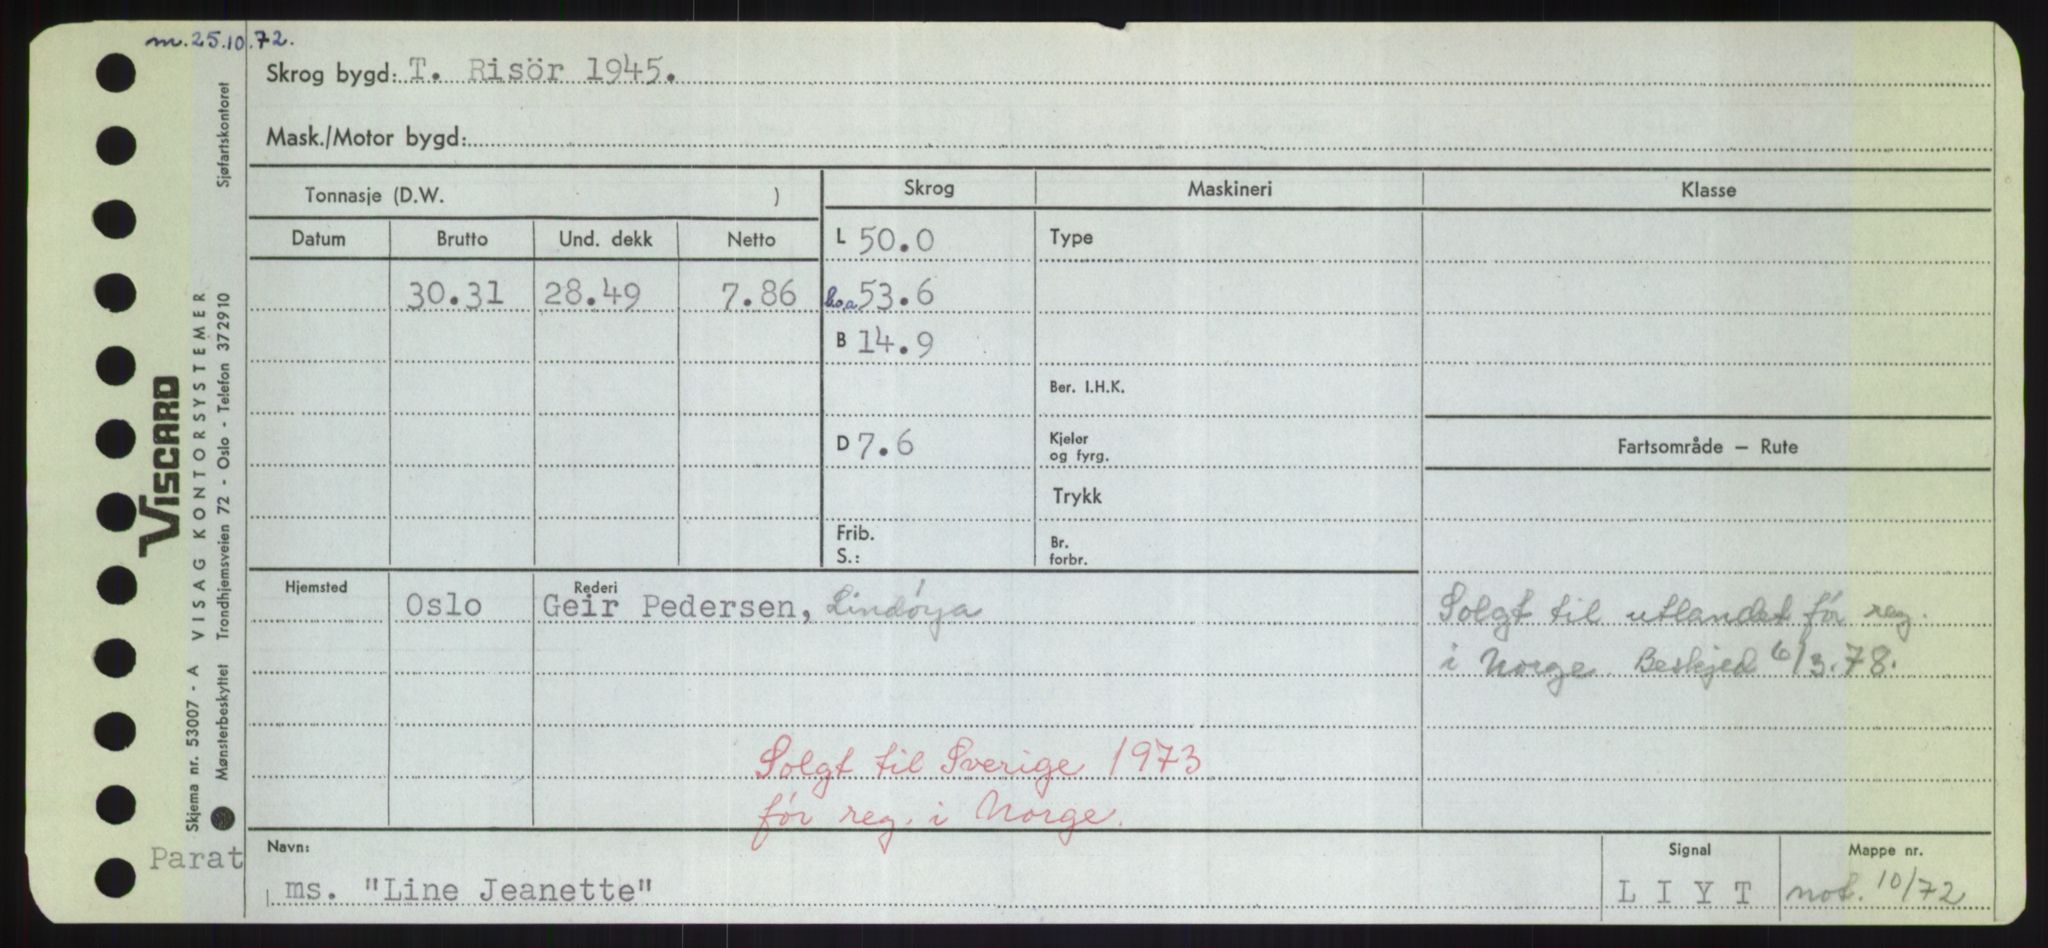 m. 25.10.72.
Skrog bygd: T. Risör 1945.
Mask./Motor bygd:
Tonnasje (D.W. )
Skrog
Maskineri
Klasse
Datum Brutto Und. dekk Netto
L 50.0
Type
30.31 28.49 7.86
l.o.a 53.6
B 14.9
Ber. I.H.K.
D 7.6
Kjeler
og fyrg.
Fartsområde — Rute
Trykk
Frib.
S.:
Br.
forbr.
Hjemsted
Rederi
Oslo Geir Pedersen, Lindøya
Solgt til utlandet før reg.
i Norge. Beskjed 6/3.78.
Solgt til Sverige 1973
før reg. i Norge.
Navn:
Signal
Mappe nr.
Parat
ms. "Line Jeanette"
L I Y T
not. 10/72
VISCARD
VISAG KONTORSYSTEMER
Skjema nr. 53007 - A
Sjøfartskontoret
Mønsterbeskyttet Trondhjemsveien 72 - Oslo - Telefon 372910